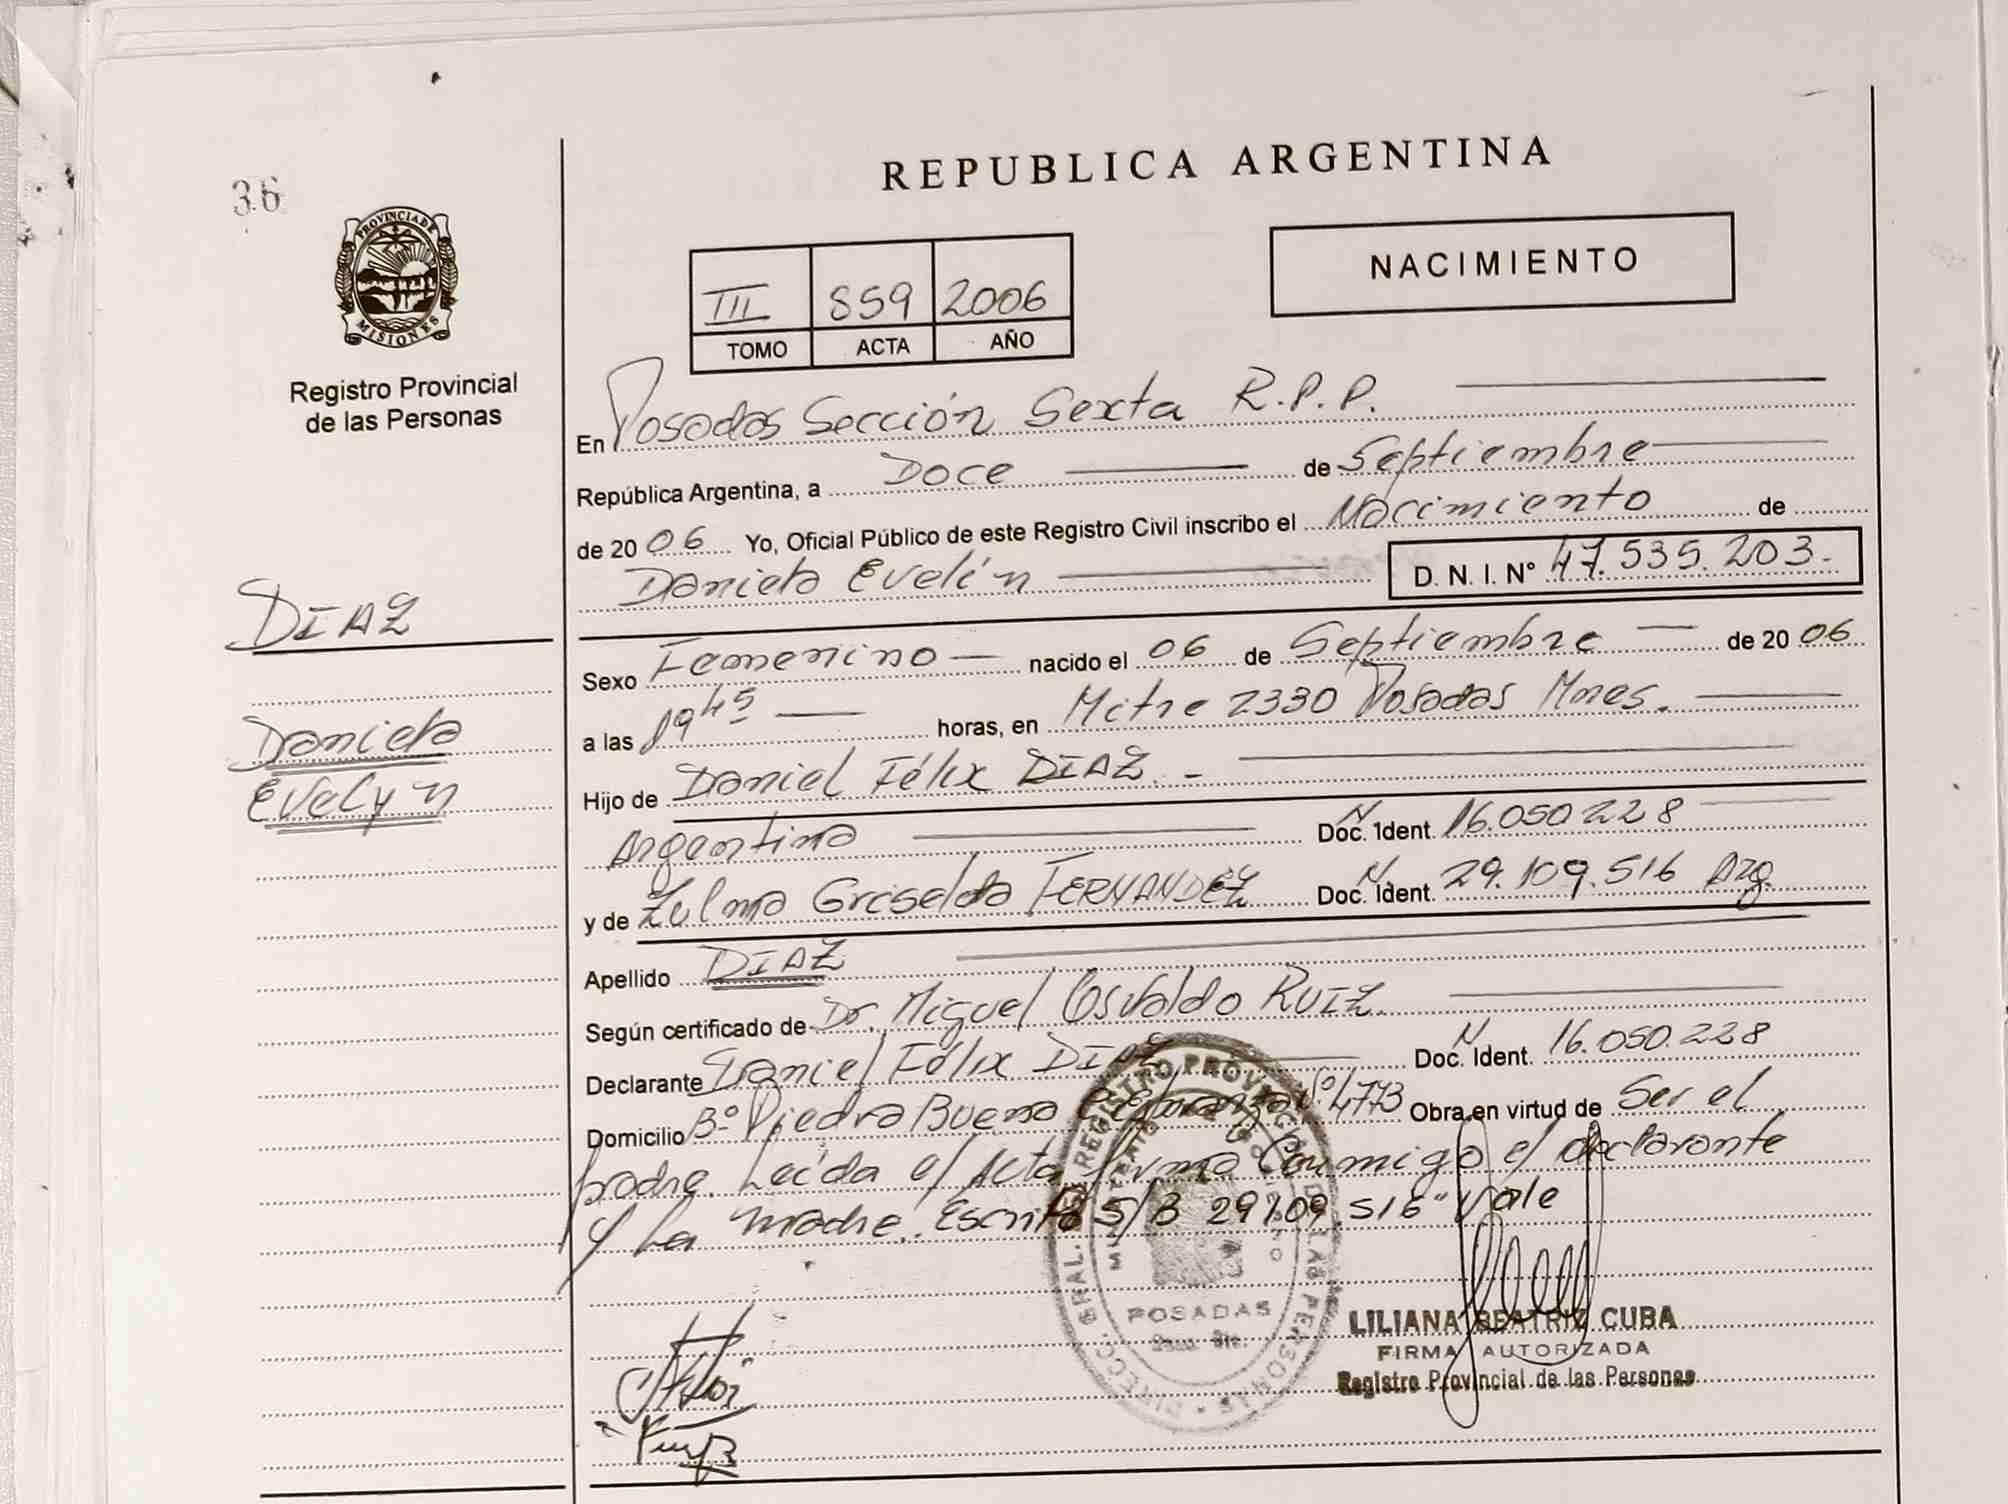 36
PROVINCIA DE
MISIONES
Registro Provincial
de las Personas
REPUBLICA ARGENTINA
NACIMIENTO
III 859 2006
TOMO ACTA AÑO
En Posadas Sección Sexta R.P.P.
República Argentina, a Doce de Septiembre
de 2006 Yo, Oficial Público de este Registro Civil inscribo el Nacimiento de
Daniela Evelín D. N. I. Nº 47.535.203.-
DIAZ
Daniela
Evelyn
Sexo Femenino nacido el 06 de Septiembre de 2006
a las 19 45 horas, en Mitre 2330 Posadas Mnes.
Hijo de Daniel Félix DIAZ. -
Argentino Doc. Ident. N 16.050.228
y de Zulma Griselda FERNANDEZ Doc. Ident. N 29.109.516 Arg.
Apellido DIAZ
Según certificado de Dr. Miguel Osvaldo RUIZ.
Declarante Daniel Félix DIAZ Doc. Ident. N 16.050.228
Domicilio Bº Piedra Buena Nº 4773 Obra en virtud de Ser el
padre. Leída el Acta firma Conmigo el declarante
y La madre. Escrito S/B 29.109.516 "Vale
DIRECC. GRAL. DEL REGISTRO PROVINCIAL DE LAS PERSONAS
MINISTERIO DE GOBIERNO
POSADAS
LILIANA BEATRIZ CUBA
FIRMA AUTORIZADA
Registro Provincial de las Personas